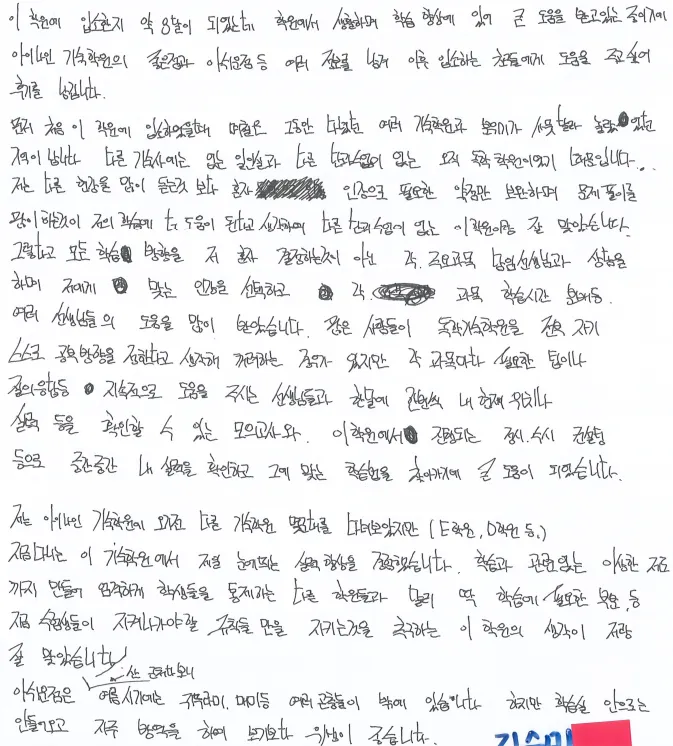 이 학원에 입소한지 약 8달이 되었는데 학원에서 생활하며 학습 향상에 있어 큰 도움을 받고있는 중이기에
아이나인 기숙학원의 좋은점과 아쉬운점등 여러 정보를 남겨 이후 입소하는 친구들에게 도움을 주고 싶어
후기를 남깁니다.
먼저 처음 이 학원에 입소하였을때 며칠은 그동안 다녔던 여러 기숙학원과 분위기가 사뭇 달라 놀랐 있었던
기억이 납니다. 다른 기숙사에는 없는 일인실과 다른 단과수업이 없는 오직 독학 학원이었기 때문입니다.
저는 다른 현강을 많이 듣는것 보다 혼자 인강으로 필요한 약점만 보완하며 문제 풀이를
많이 하는것이 저의 학습에 더 도움이 된다고 생각하여 다른 단과수업이 없는 이 학원이랑 잘 맞았습니다.
그렇다고 모든 학습 방향을 저 혼자 결정하는것이 아닌 각 주요과목 담임선생님과 상담을
하며 저에게 맞는 인강을 선택하고 각 과목 학습시간 분배등
여러 선생님들의 도움을 많이 받았습니다. 많은 사람들이 독학기숙학원을 전부 자기
스스로 공부방향을 정한다고 생각해 꺼려하는 경우가 있지만 각 과목마다 필요한 팁이나
질의응답등 지속적으로 도움을 주시는 선생님들과 한달에 한번씩 내 현재 위치나
실력 등을 확인할 수 있는 모의고사와 이 학원에서 진행되는 정시.수시 컨설팅
등으로 중간중간 내 실력을 확인하고 그에 맞는 학습법을 찾아가기에 큰 도움이 되었습니다.
저는 아이나인 기숙학원에 오기전 다른 기숙학원 몇군데를 다녀보았지만 (E학원, D학원 등)
지금다니는 이 기숙학원에서 제일 눈에띄는 실력 향상을 경험했습니다. 학습과 관련없는 이상한 규정
까지 만들어 엄격하게 학생들을 통제하는 다른 학원들과 달리 딱 학습에 필요한 부분 등
지금 수험생들이 지켜나가야할 규칙들 만을 지키는것을 추구하는 이 학원의 생각이 저랑
잘 맞았습니다
산 근처다보니
아쉬운점은 여름시기에는 귀뚜라미, 매미등 여러 곤충들이 밖에 있습니다 하지만 학습실 안으로는
안들어오고 자주 방역을 하여 보기보다 위생이 좋습니다.